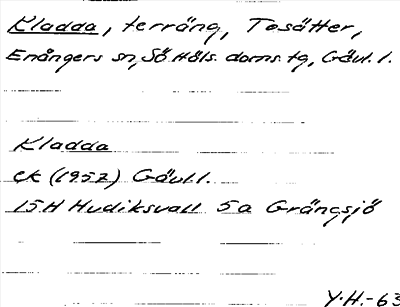 Kladda, terräng, Tosätter,
Enångers sn, Sö Häls. doms. tg, Gävl. l.
Kladda
ek (1957) Gävl l.
15H Hudiksvall 5a Grängsjö
Y.H.-63